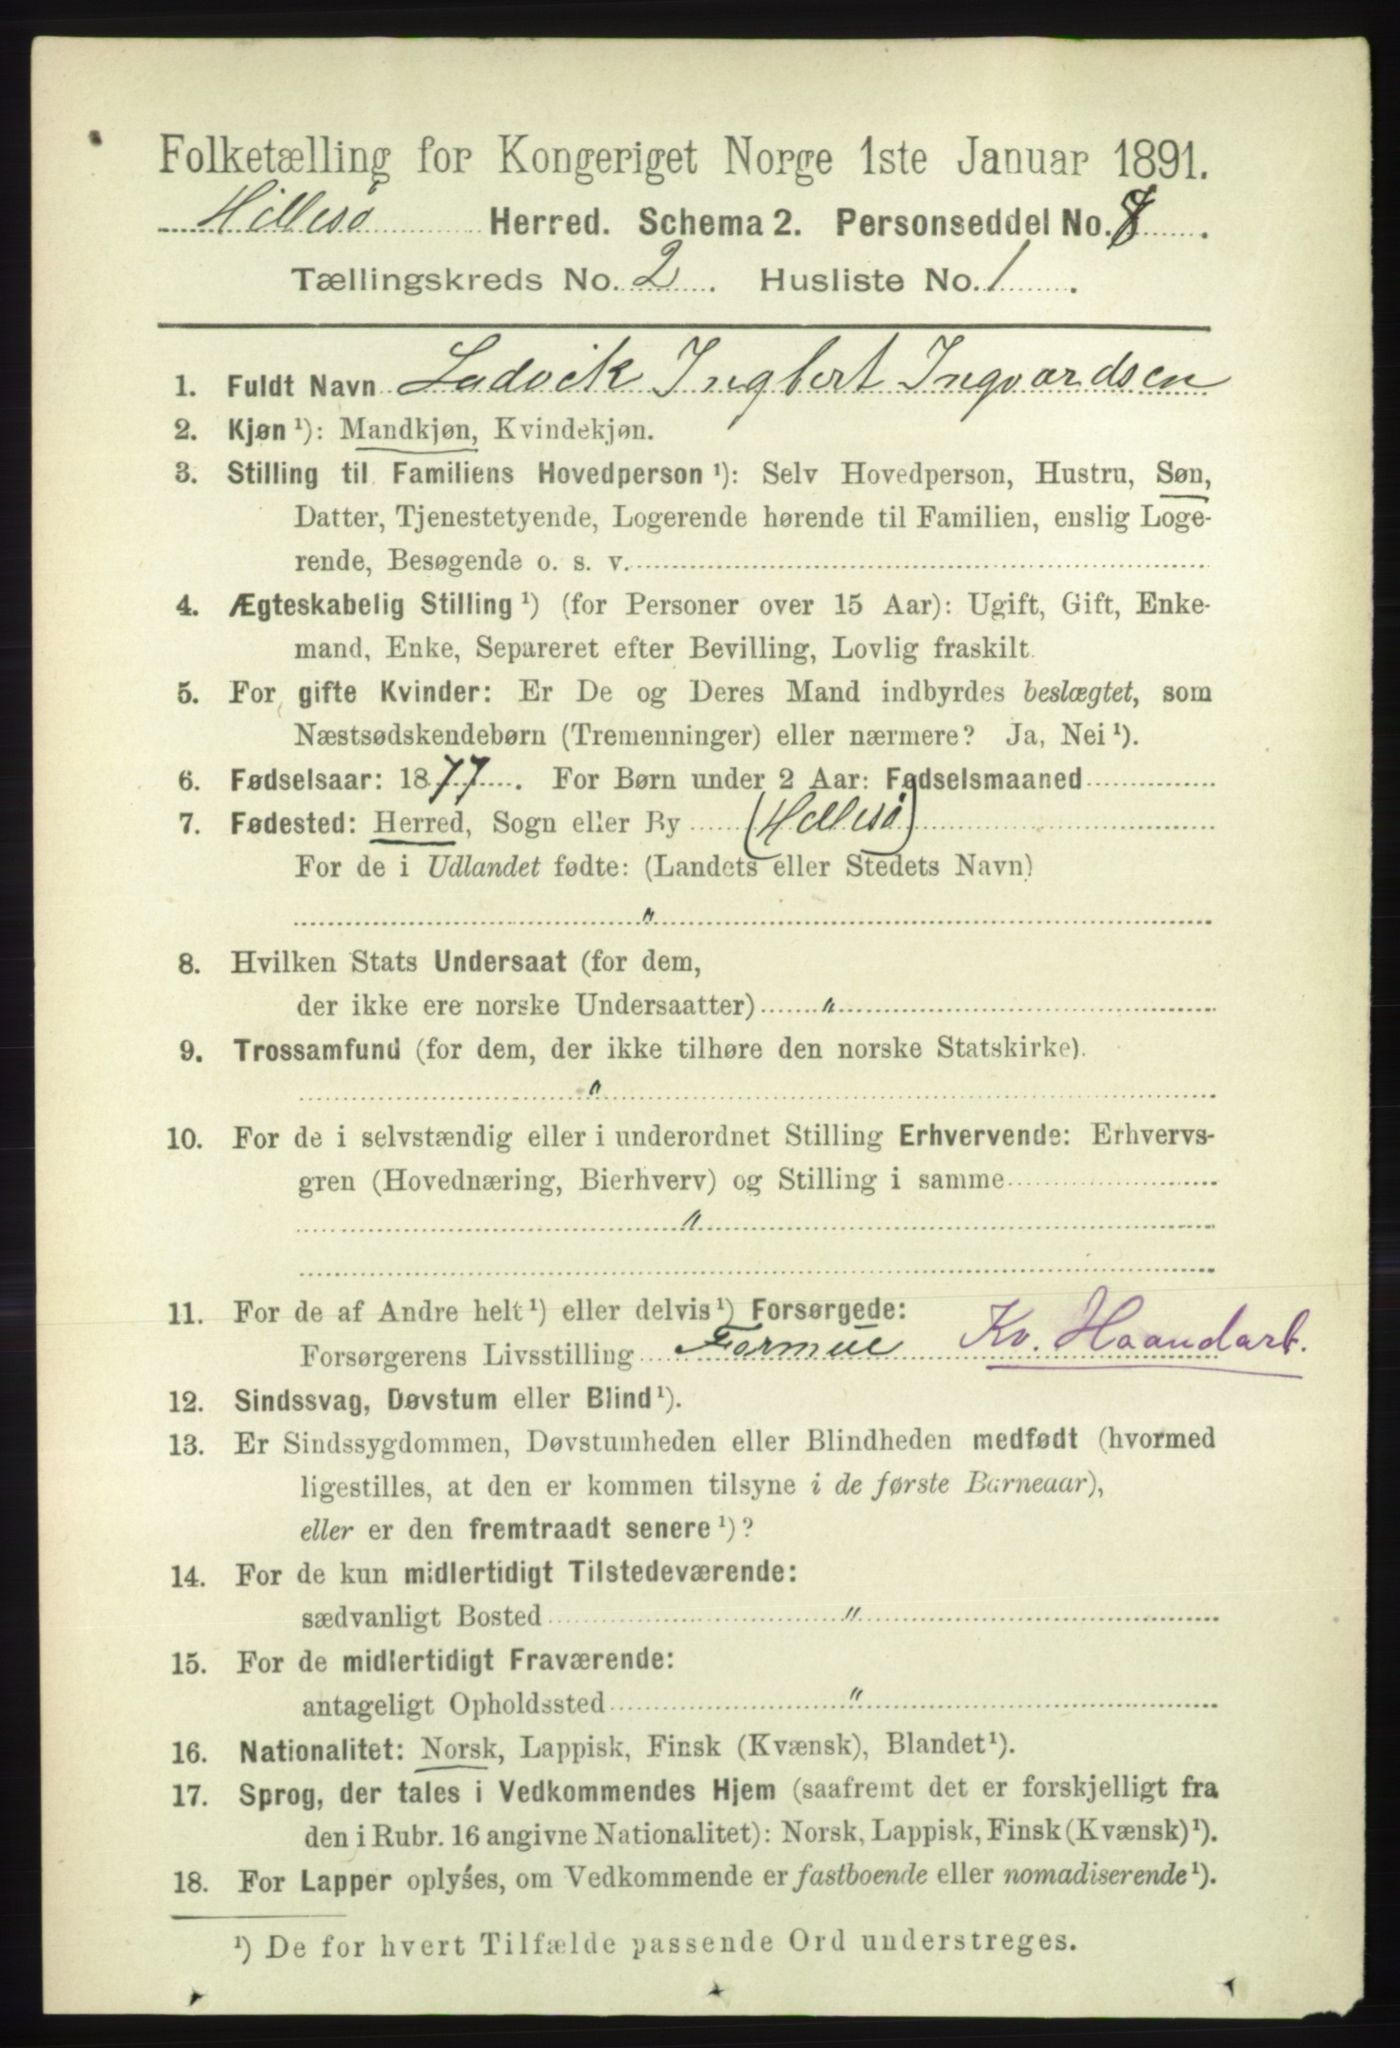 Folketælling for Kongeriget Norge 1ste Januar 1891.
Hillesø Herred. Schema 2. Personseddel No. 8.
Tællingskreds No. 2. Husliste No. 1.
1. Fuldt Navn Ludvik Ingbert Ingvardsen
2. Kjøn ¹): Mandkjøn, Kvindekjøn.
3. Stilling til Familiens Hovedperson ¹): Selv Hovedperson, Hustru, Søn,
Datter, Tjenestetyende, Logerende hørende til Familien, enslig Loge-
rende, Besøgende o. s. v.
4. Ægteskabelig Stilling ¹) (for Personer over 15 Aar): Ugift, Gift, Enke-
mand, Enke, Separeret efter Bevilling, Lovlig fraskilt.
5. For gifte Kvinder: Er De og Deres Mand indbyrdes beslægtet, som
Næstsødskendebørn (Tremenninger) eller nærmere? Ja, Nei ¹).
6. Fødselsaar: 1877. For Børn under 2 Aar: Fødselsmaaned
7. Fødested: Herred, Sogn eller By (Hillesø)
For de i Udlandet fødte: (Landets eller Stedets Navn)
"
8. Hvilken Stats Undersaat (for dem,
der ikke ere norske Undersaatter) "
9. Trossamfund (for dem, der ikke tilhøre den norske Statskirke).
"
10. For de i selvstændig eller i underordnet Stilling Erhvervende: Erhvervs-
gren (Hovednæring, Bierhverv) og Stilling i samme
"
11. For de af Andre helt ¹) eller delvis ¹) Forsørgede:
Forsørgerens Livsstilling Formue Kv. Haandarb.
12. Sindssvag, Døvstum eller Blind ¹).
13. Er Sindssygdommen, Døvstumheden eller Blindheden medfødt (hvormed
ligestilles, at den er kommen tilsyne i de første Barneaar),
eller er den fremtraadt senere ¹)?
14. For de kun midlertidigt Tilstedeværende:
sædvanligt Bosted "
15. For de midlertidigt Fraværende:
antageligt Opholdssted "
16. Nationalitet: Norsk, Lappisk, Finsk (Kvænsk), Blandet ¹).
17. Sprog, der tales i Vedkommendes Hjem (saafremt det er forskjelligt fra
den i Rubr. 16 angivne Nationalitet): Norsk, Lappisk, Finsk (Kvænsk) ¹).
18. For Lapper oplyses, om Vedkommende er fastboende eller nomadiserende ¹).
¹) De for hvert Tilfælde passende Ord understreges.